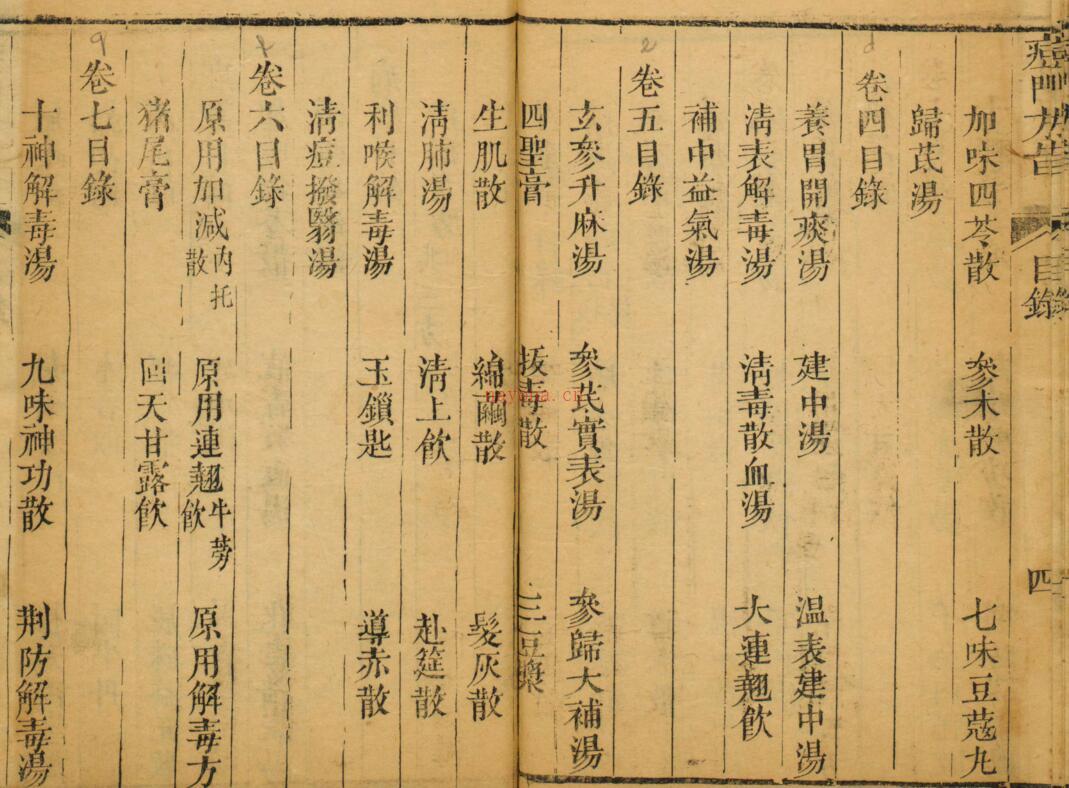 痘門方旨 卷 目錄 四
加味四苓散 參术散 七味豆蔻丸
歸芪湯
卷四目錄
養胃開痰湯 建中湯 温表建中湯
淸表解毒湯 淸毒散血湯 大連翹飮
補中益氣湯
卷五目錄
玄參升麻湯 參芪實表湯 參歸大補湯
四聖膏 拔毒散 三豆漿
生肌散 綿繭散 髮灰散
淸肺湯 淸上飮 赴筵散
利喉解毒湯 玉鎖匙 導赤散
淸痘撥翳湯
卷六目錄
原用加減內托散 原用連翹牛蒡飮 原用解毒方
猪尾膏 回天甘露飮
卷七目錄
十神解毒湯 九味神功散 荆防解毒湯